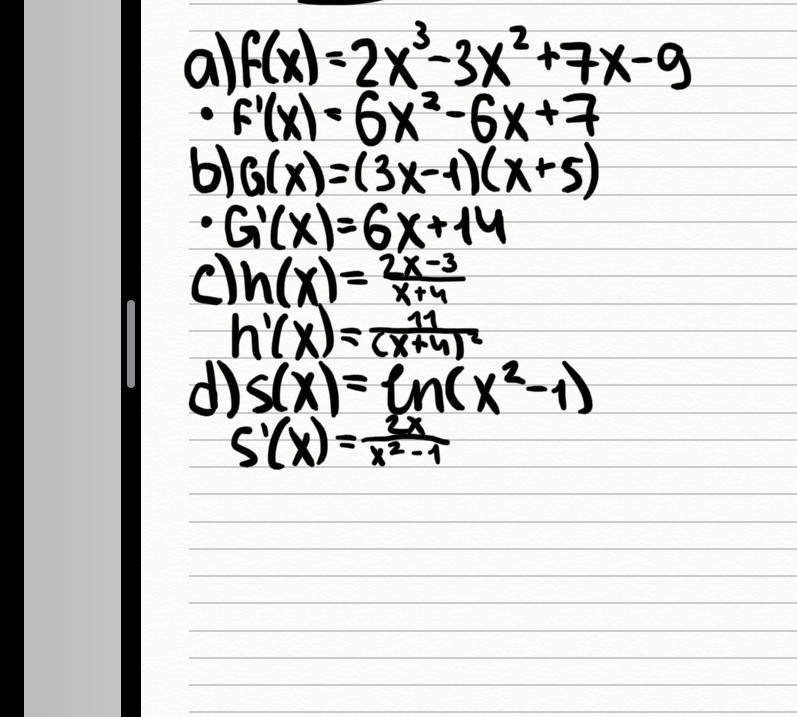 a) f(x) = 2x³ - 3x² + 7x - 9
• f'(x) = 6x² - 6x + 7
b) G(x) = (3x - 1)(x + 5)
• G'(x) = 6x + 14
c) h(x) = (2x - 3)/(x + 4)
h'(x) = 11/(x + 4)²
d) s(x) = ln(x² - 1)
s'(x) = 2x/(x² - 1)